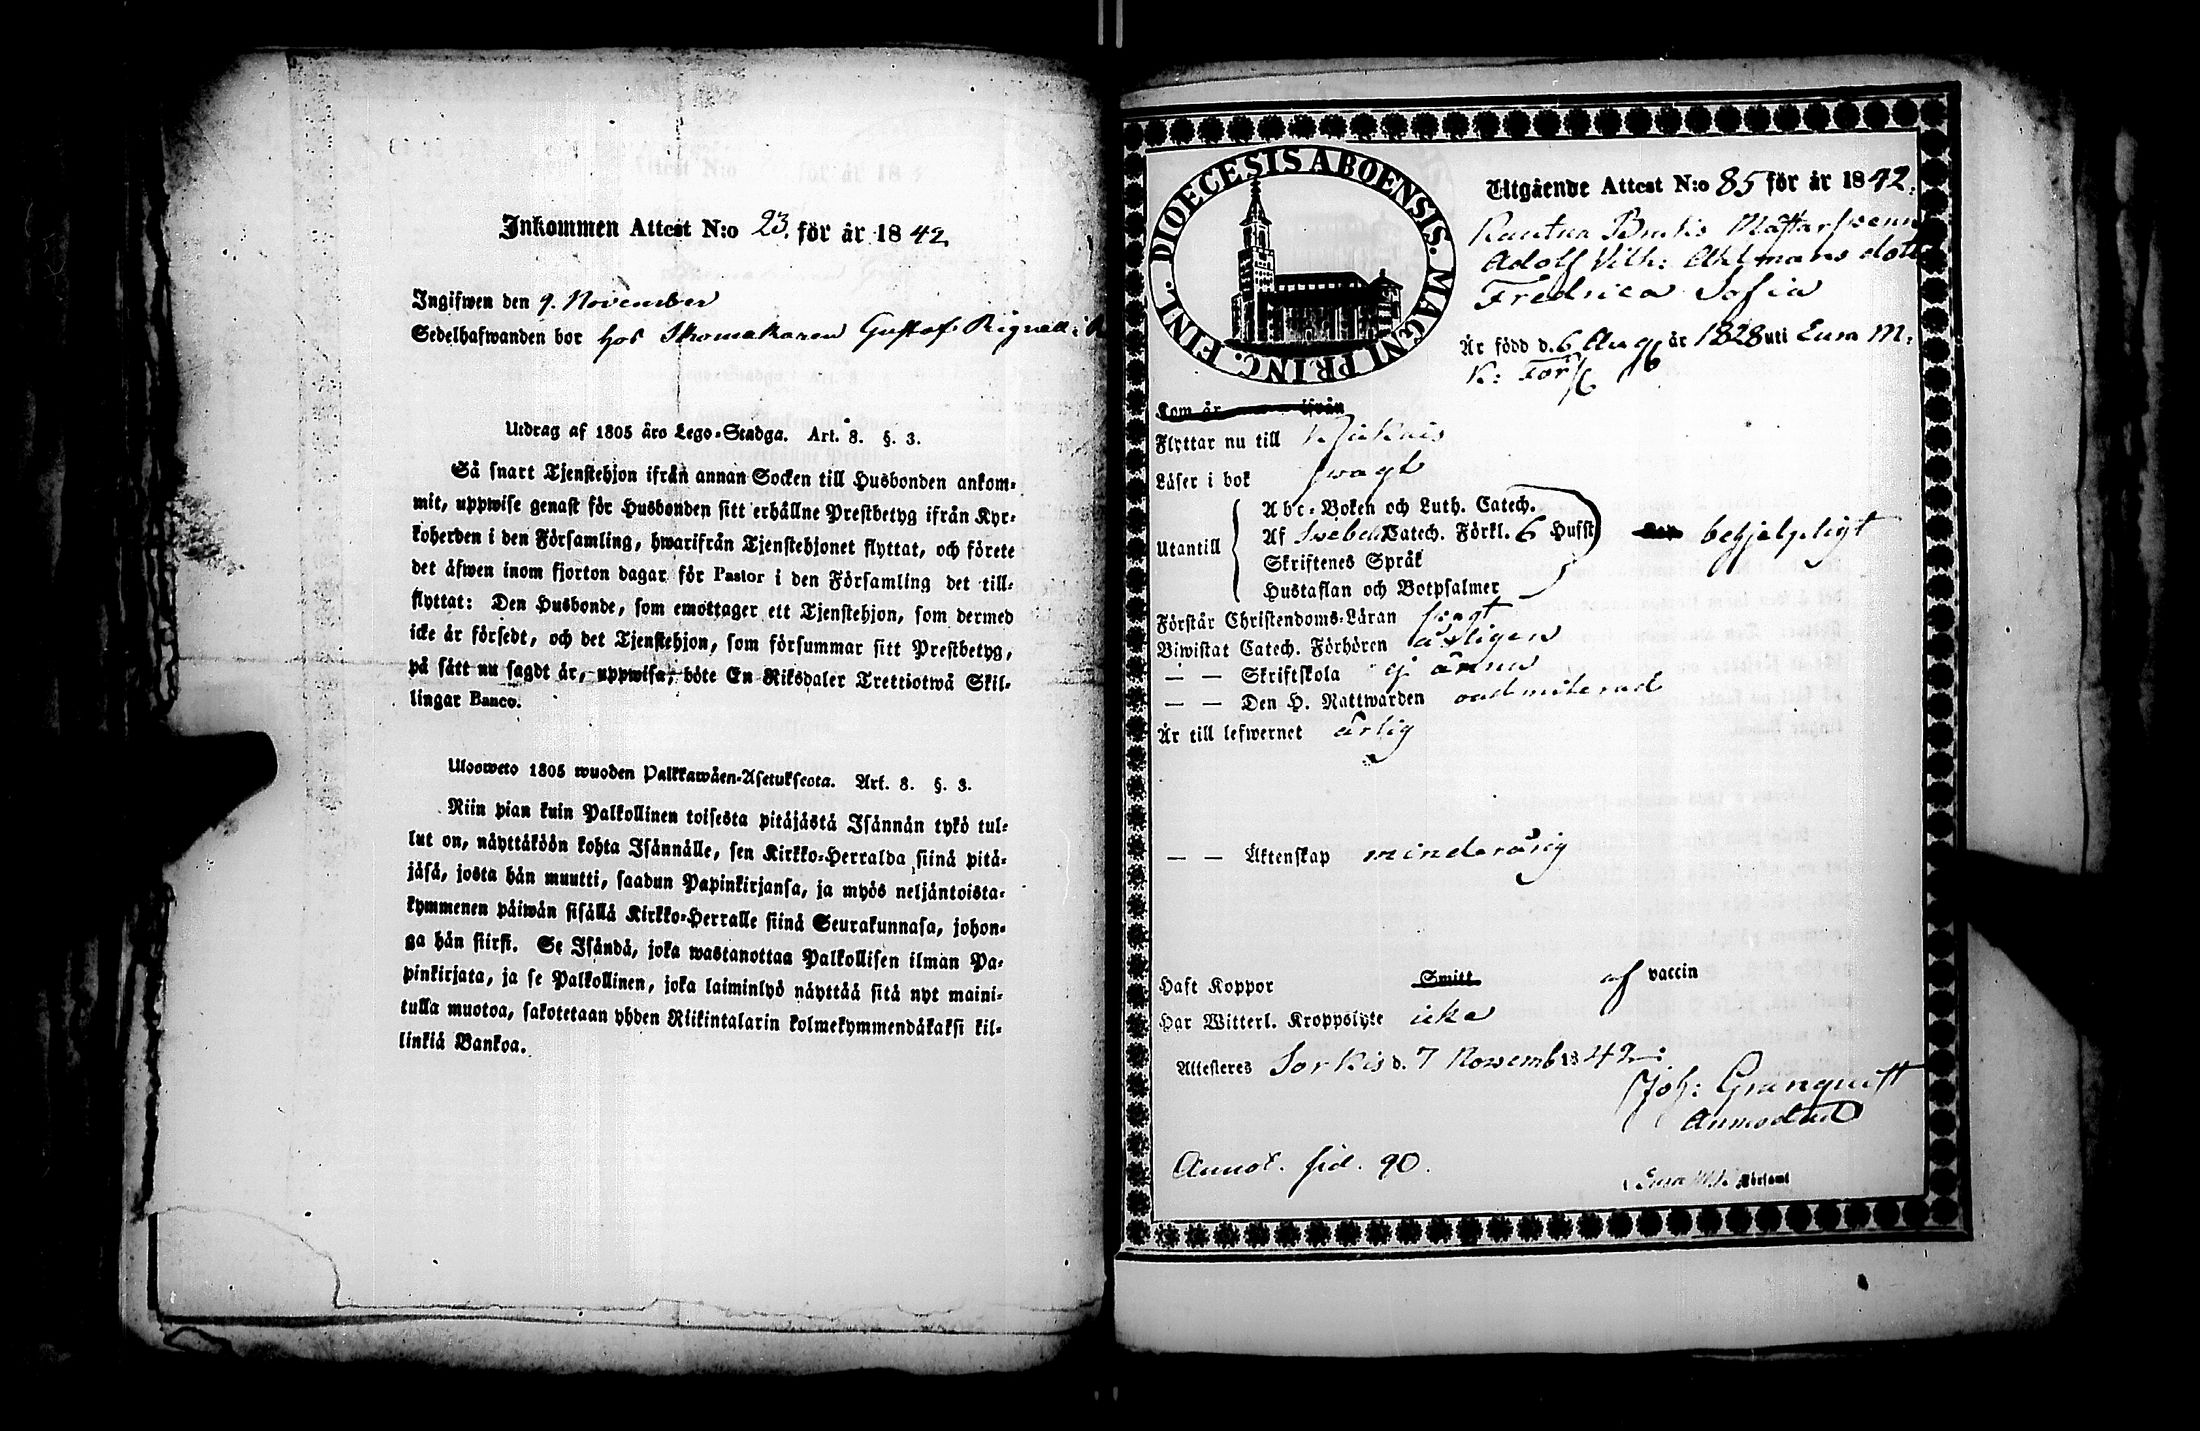 Inkommen Attest N:o 23. för år 1842.
Ingifwen den 9. November
Sedelhafwanden bor hos Skomakaren Gustaf Rignell i
Utdrag af 1805 års Lego-Stadga. Art. 8. §. 3.
Så snart Tjenstehjon ifrån annan Socken till Husbonden ankom-
mit, uppwise genast för Husbonden sitt erhållne Prestbetyg ifrån Kyr-
koherden i den Församling, hwarifrån Tjenstehjonet flyttat, och förete
det äfwen inom fjorton dagar för Pastor i den Församling det till-
flyttat: Den Husbonde, som emottager ett Tjenstehjon, som dermed
icke är försedt, och det Tjenstehjon, som försummar sitt Prestbetyg,
på sätt nu sagdt är, uppwisa, böte En Riksdaler Trettiotwå Skil-
lingar Banco.
Ulosweto 1805 wuoden Palkkawäen-Asetuksesta. Art. 8. §. 3.
Niin pian kuin Palkollinen toisesta pitäjästä Isännän tykö tul-
lut on, näyttäköön kohta Isännälle, sen Kirkko-Herralda siinä pitä-
jäsä, josta hän muutti, saadun Papinkirjansa, ja myös neljäntoista-
kymmenen päiwän sisällä Kirkko-Herralle siinä Seurakunnasa, johon-
ga hän siirsi. Se Isändä, joka wastanottaa Palkollisen ilman Pa-
pinkirjata, ja se Palkollinen, joka laiminlyö näyttää sitä nyt maini-
tulla muotoa, sakotetaan yhden Riikintalarin kolmekymmendäkaksi kil-
linkiä Bankoa.
DIOECESIS ABOENSIS. MAGNI PRINC. FINL.
Utgående Attest N:o 85 för år 1842.
Kautua Bruks Mästarswenn
Adolf Vilh: Ahlmans dott
Fredrica Sofia
Är född d. 6 Aug är 1828 uti Eura M:
K: Förs
Kom år ifrån
Flyttar nu till Kjukais
Läser i bok swagt
Utantill
Abc-Boken och Luth. Catech.
Af Swebel. Catech. Förkl. 6 Hufst
Skriftenes Språk
Hustaflan och Botpsalmer
behjelpeligt
Förstår Christendoms-Läran swagt
Biwistat Catech. Förhören årligen
— — Skriftskola ej ännu
— — Den H. Nattwarden oadmitterad
Är till lefwernet ärlig
— — Äktenskap minderårig
Haft Koppor Smitt af vaccin
Har Witterl. Kroppslyte icke
Attesteres Sorkis d. 7 Novemb 1842:
Joh: Granquist
Annot. sid. 90.
Eura M. Församl